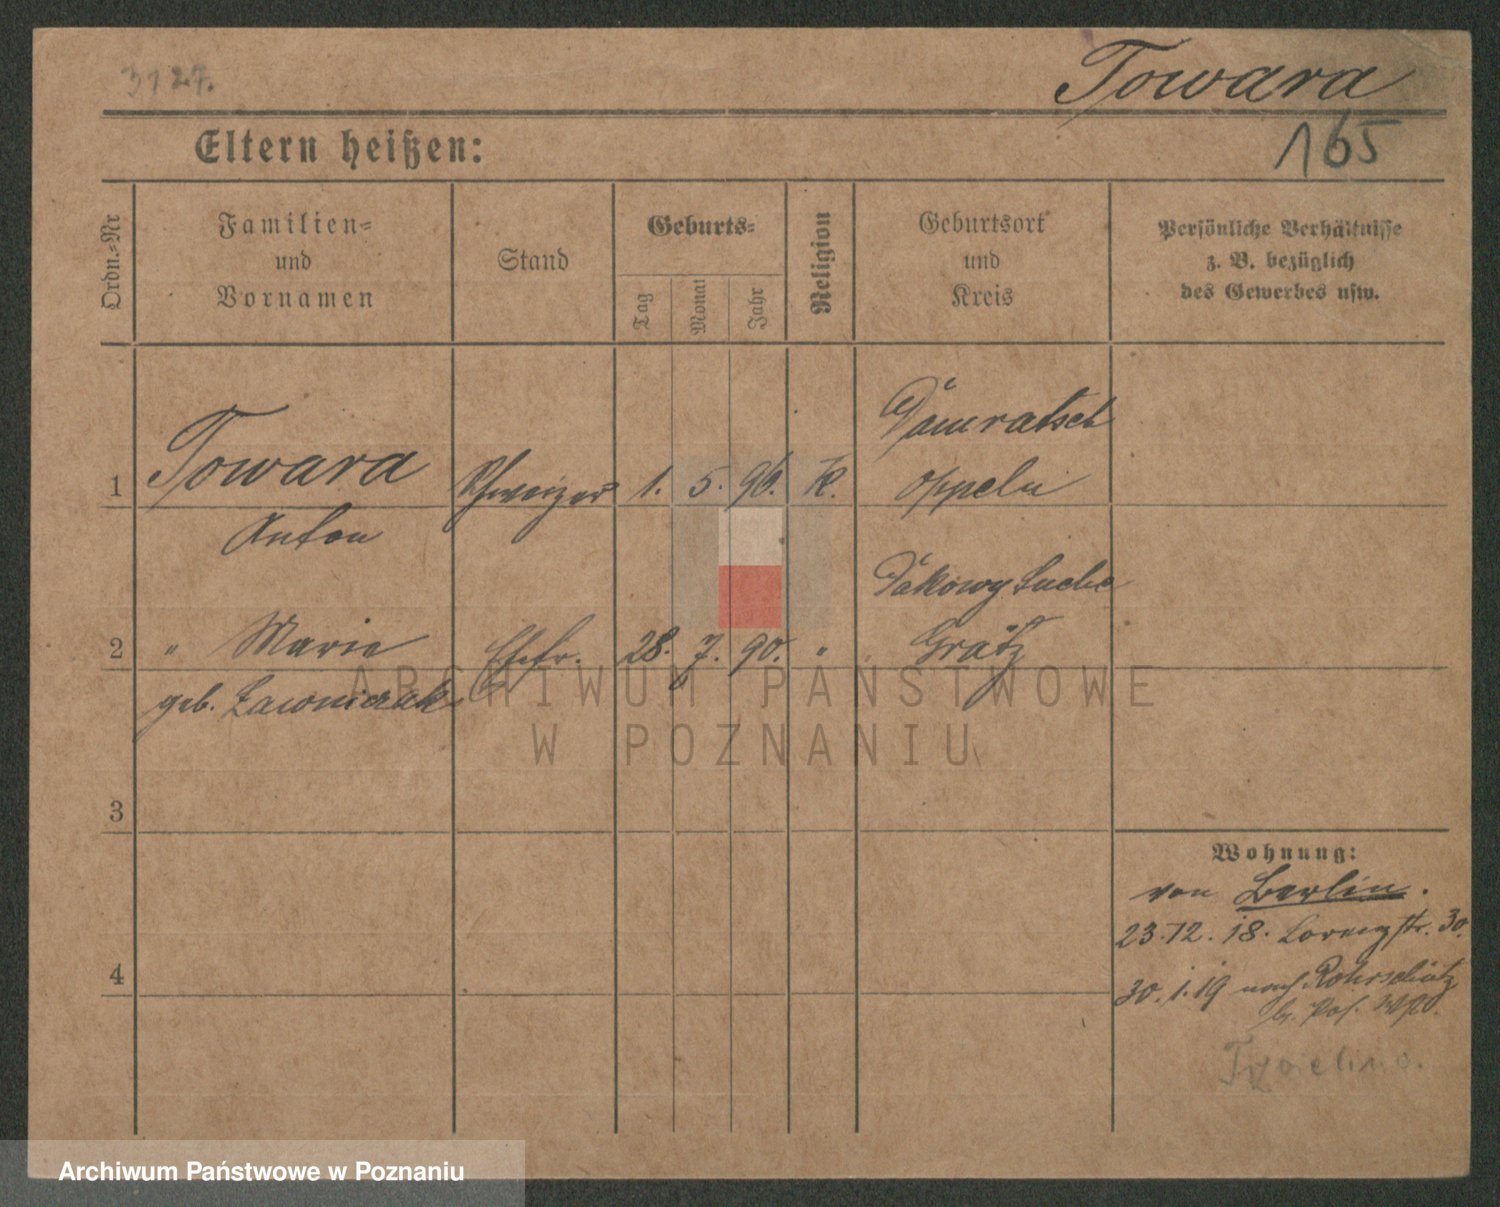 3127.
Towara
165
Eltern heißen:
Ordn.=Nr
Familien=
und
Vornamen
Stand
Geburts=
Tag
Monat
Jahr
Religion
Geburtsort
und
Kreis
Persönliche Verhältnisse
z. B. bezüglich
des Gewerbes usw.
1
Towara
Anton
Schweizer
1.
5.
96.
K.
Damratsch
Oppeln
2
" Marie
geb. Lawniczak
Ehefr.
28.
7.
90.
"
Ptakowy Suche
Grätz
3
4
Wohnung:
von Berlin.
23.12.18. Lorenzstr. 30.
30.1.19 nach Rohrschütz
ARCHIWUM PAŃSTWOWE
W POZNANIU
Archiwum Państwowe w Poznaniu